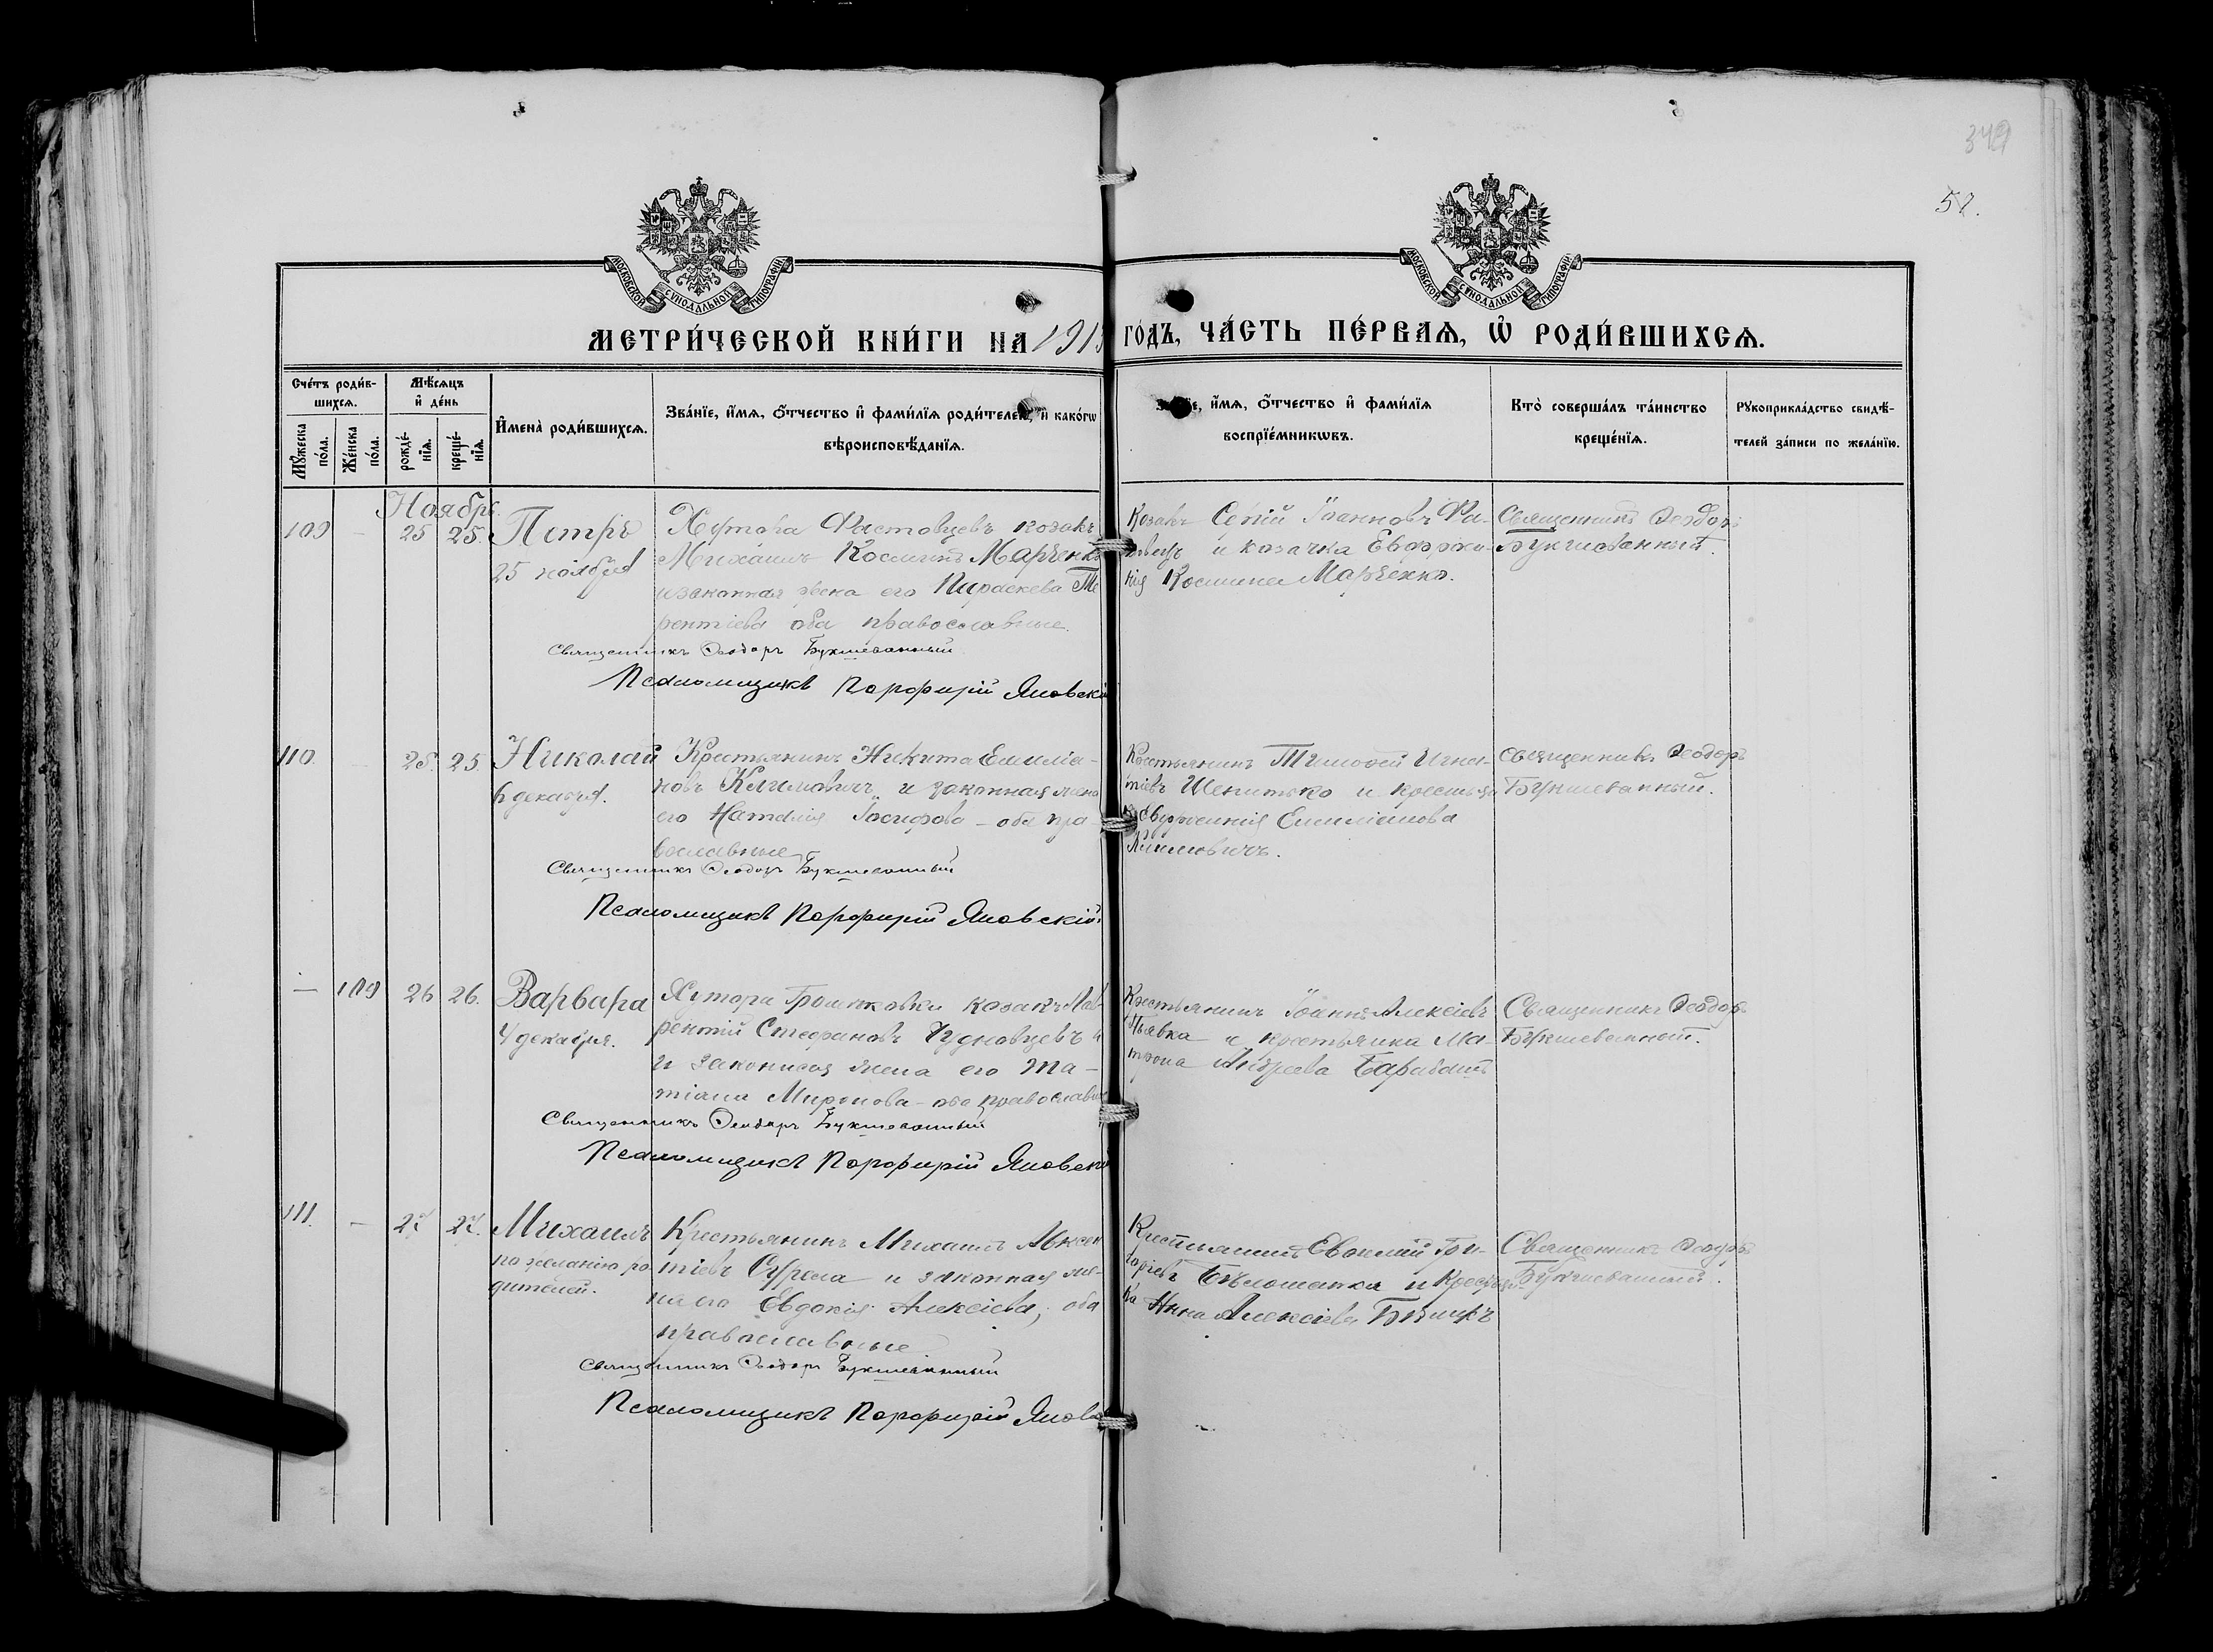 349
52.
МОСКОВСКОЙ СѴНОДАЛЬНОЙ ТИПОГРАФІИ
МОСКОВСКОЙ СѴНОДАЛЬНОЙ ТИПОГРАФІИ
МЕТРИ́ЧЕСКОЙ КНИ́ГИ НА 191 ГО́ДЪ, ЧА́СТЬ ПЕ́РВАЯ, Ѡ РОДИ́ВШИХСЯ.
Сче́тъ роди́в-
шихся.
Му́жеска по́ла.
Же́нска по́ла.
Мѣ́сяцъ
и де́нь
рожде́-
нїя.
креще́-
нїя.
Имена̀ роди́вшихся.
Зва́нїе, и́мя, о́тчество и фами́лїя роди́телей, и како́гѡ
вѣроисповѣ́данїя.
и́мя, о́тчество и фами́лїя
воспрїе́мникѡвъ.
Кто̀ соверша́лъ та́инство
креще́нїя.
Рукоприкла́дство свидѣ́-
телей за́писи по жела́нїю.
Ноябрь
109 - 25 25. Петръ
25 ноября
Хутора Фастовцевъ козакъ
Михаилъ Косминъ Марченко
и законная жена его Параскева Те
рентіева оба православные.
Священникъ Ѳеодоръ Букшеванный
Псаломщикъ Порфирій Яновскій
Козакъ Іоанновъ Фа-
и козачка Евфроси-
нія Космина Марченко.
Священникъ Ѳеодоръ
Букшеванный.
110. - 25. 25. Николай
6 декабря.
Крестьянинъ Никита Емилiа-
новъ Климовичъ и законная жена
его Наталія Іосифова - оба пра
вославные
Священникъ Ѳеодоръ Букшеванный
Псаломщикъ Порфирій Яновскій.
Крестьянинъ Тимофей Игна-
тіевъ и крестьян
Емиліанова
Климовичъ.
Священникъ Ѳеодоръ
Букшеванный.
- 109 26 26. Варвара
4 декабря.
Хутора козакъ Лав-
рентій Стефановъ Чудновцевъ
и законная жена его Та-
тіана Миронова - оба православные
Священникъ Ѳеодоръ Букшеванный
Псаломщикъ Порфирій Яновскій
Крестьянинъ Іоаннъ Алексіевъ
и крестьянка Ма-
трона Андреева Барабашъ
Священникъ Ѳеодоръ
Букшеванный.
111. - 27 27. Михаилъ
по желанію ро
дителей.
Крестьянинъ Михаилъ Авксен
тіевъ и законная же-
на его Евдокія Алексіева, оба
православные
Священникъ Ѳеодоръ Букшеванный
Псаломщикъ Порфирій Яновс
Крестьянинъ Гри-
горіевъ Бѣлошапка и Крестьян
ка Анна Алексіева
Священникъ Ѳеодоръ
Букшеванный.